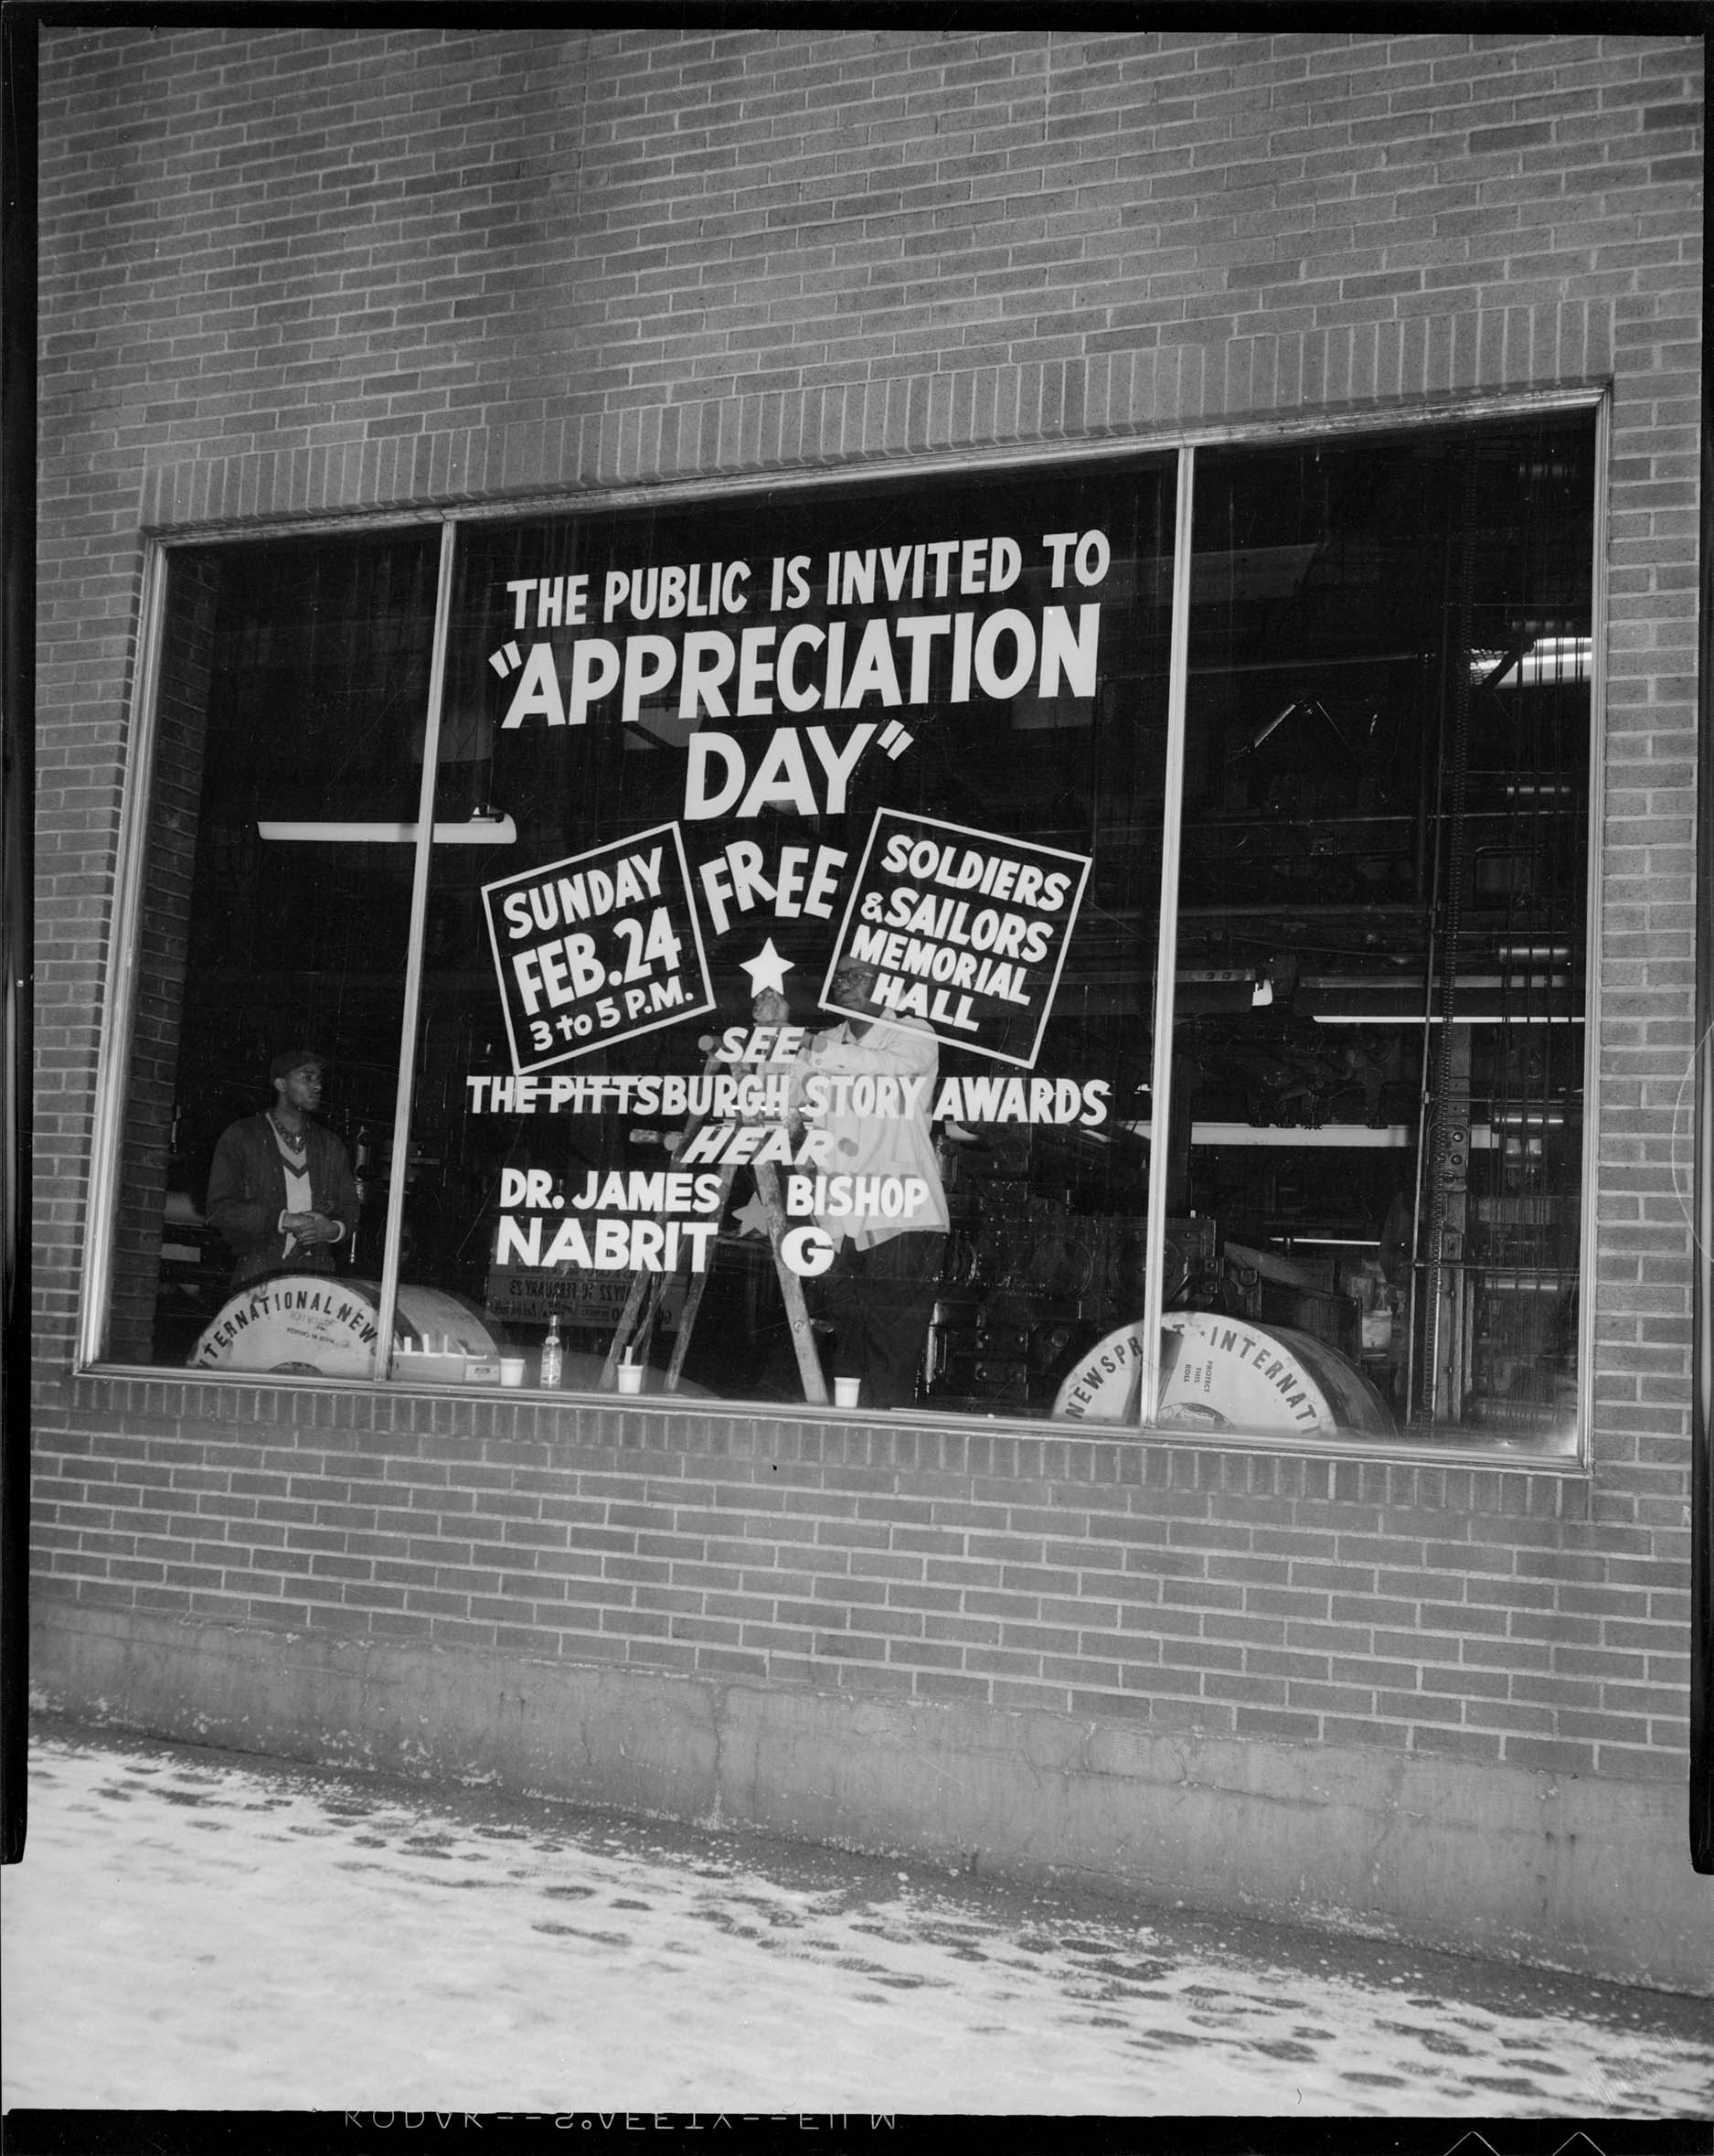 THE PUBLIC IS INVITED TO
"APPRECIATION
DAY"
SUNDAY
FEB. 24
3 to 5 P.M.
FREE
SOLDIERS
& SAILORS
MEMORIAL
HALL
SEE
THE PITTSBURGH STORY AWARDS
HEAR
DR. JAMES
NABRIT
BISHOP
G
TERNATIONAL NEW
MADE IN CANADA
FEBRUARY 23
NEWSPR
INTERNAT
PROTECT
THIS
ROLL
KODAK--SAFETY--FILM